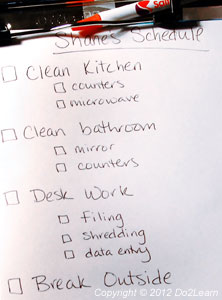 Shane's Schedule
Clean Kitchen
counters
microwave
Clean bathroom
mirror
counters
Desk Work
filing
Shredding
data entry
Break Outside
Copyright © 2012 Do2Learn